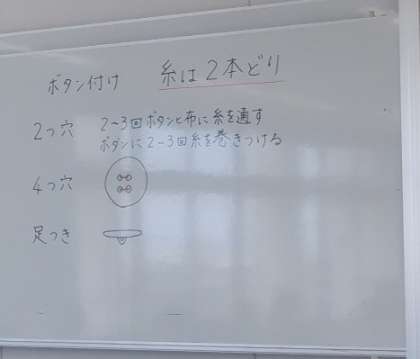 ボタン付け 糸は2本どり
2つ穴 2~3回ボタンと布に糸を通す
ボタンに2~3回糸を巻きつける
4つ穴
足つき